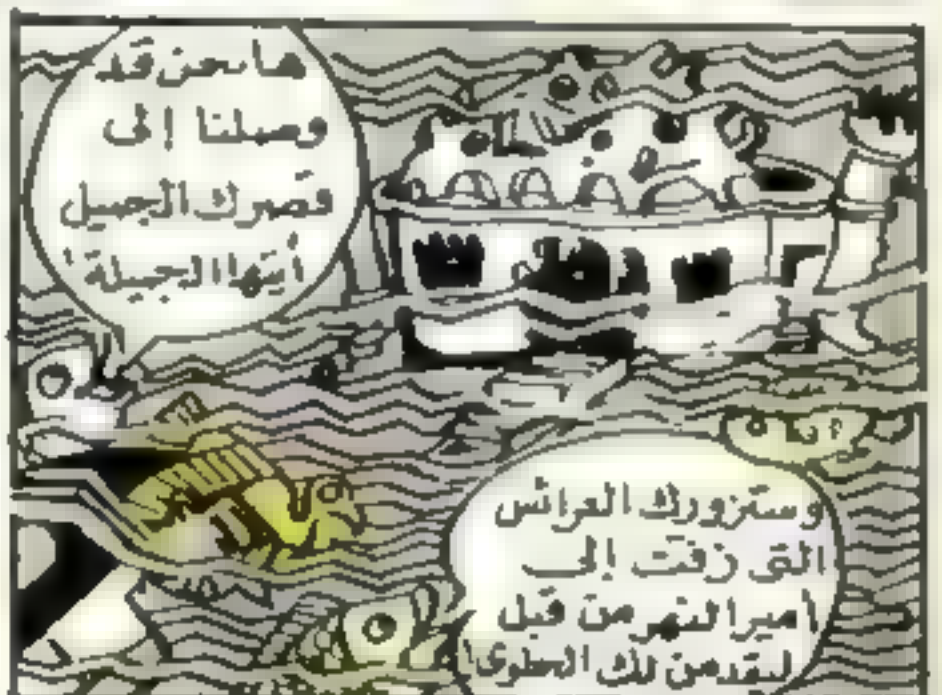 ها نحن قد
وصلنا إلى
قصرك الجميل
أيتها الجميلة!
وستزورك العرائس
التي زفت إلى
أمير النهر من قبل
ليقدمن لك الحلوى!